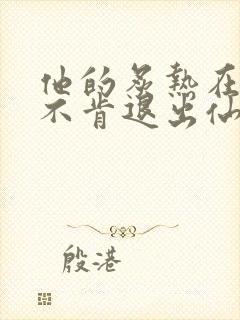 他的炙热在
不肯退出仙
殷港